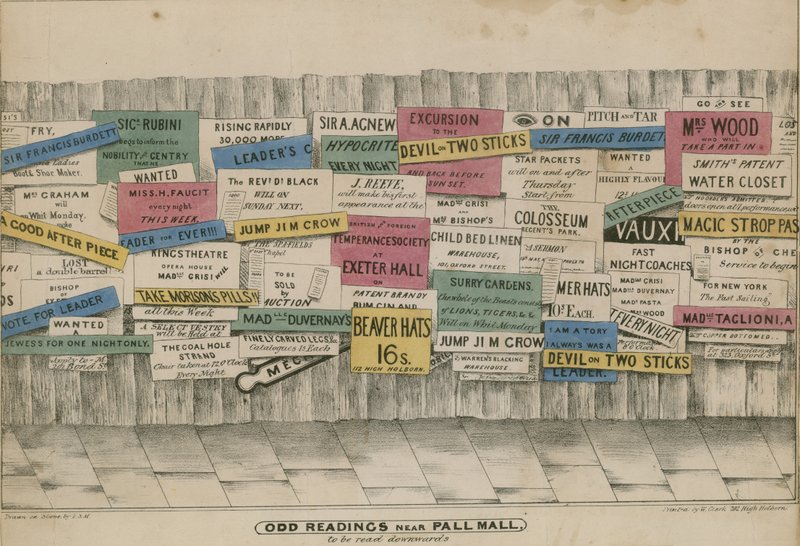 SI'S
FRY,
SIR FRANCIS BURDETT
Ladies
Boot & Shoe Maker.
MRS GRAHAM
will
on Whit Monday,
make
A GOOD AFTER PIECE
LOST
a double barrel
BISHOP
OF
VOTE FOR LEADER
WANTED
A
JEWESS FOR ONE NIGHT ONLY.
Apply to M
Bond St
SIGR RUBINI
begs to inform the
NOBILITY AND GENTRY
THAT HE
WANTED
MISS. H. FAUCIT
every night
THIS WEEK.
EADER FOR EVER!!!
KINGS THEATRE
OPERA HOUSE
MADME GRISI WILL
TAKE MORISONS PILLS!!
all this Week
A SELECT VESTRY
will be Held at
THE COAL HOLE
STRAND
Chair taken at 12 O'Clock
Every Night
RISING RAPIDLY
30,000 MORE
LEADER'S C
THE REVD DL BLACK
WILL ON
SUNDAY NEXT,
JUMP JIM CROW
THE SPAFIELDS
Chapel
TO BE
SOLD
by
AUCTION
MADLLE DUVERNAY'S
FINELY CARVED LEGS &c
Catalogues 1s Each
SIR A. AGNEW
HYPOCRITE
EVERY NIGHT
J. REEVE,
will make his first
appearance at the
BRITISH AND FOREIGN
TEMPERANCE SOCIETY
AT
EXETER HALL
ON
PATENT BRANDY
RUM GIN AND
BEAVER HATS
16s.
112 HIGH HOLBORN.
EXCURSION
TO THE
DEVIL ON TWO STICKS
AND BACK BEFORE
SUN SET.
MADME GRISI
AND
MRS BISHOP'S
CHILD BED LINEN
WAREHOUSE,
101, OXFORD STREET.
SURRY GARDENS.
The whole of the Beasts consist
of LIONS, TIGERS, &c &
Will on Whit Monday
JUMP JIM CROW
WARREN'S BLACKING
WAREHOUSE
ON
SIR FRANCIS BURDET
STAR PACKETS
will on and after
Thursday
Start from
THE
COLOSSEUM
REGENT'S PARK.
A SERMON
MER HATS
10s EACH.
I AM A TORY
I ALWAYS WAS A
DEVIL ON TWO STICKS
LEADER.
PITCH AND TAR
WANTED
HIGHLY FLAVOU
AFTERPIECE
VAUX
FAST
NIGHT COACHES
MADME GRISI
MADLLE DUVERNAY
MADME PASTA
EVERY NIGHT
GO AND SEE
MRS WOOD
WHO WILL
TAKE A PART IN
SMITH'S PATENT
WATER CLOSET
MAGIC STROP PAS
BY THE
BISHOP OF CHE
Service to begin
FOR NEW YORK
The Fast Sailing,
MADLLE TAGLIONI, A
LOS
AND
ODD READINGS NEAR PALL MALL.
to be read downwards
Drawn on Stone, by J.S.M
Printed by W. Clerk 202 High Holborn